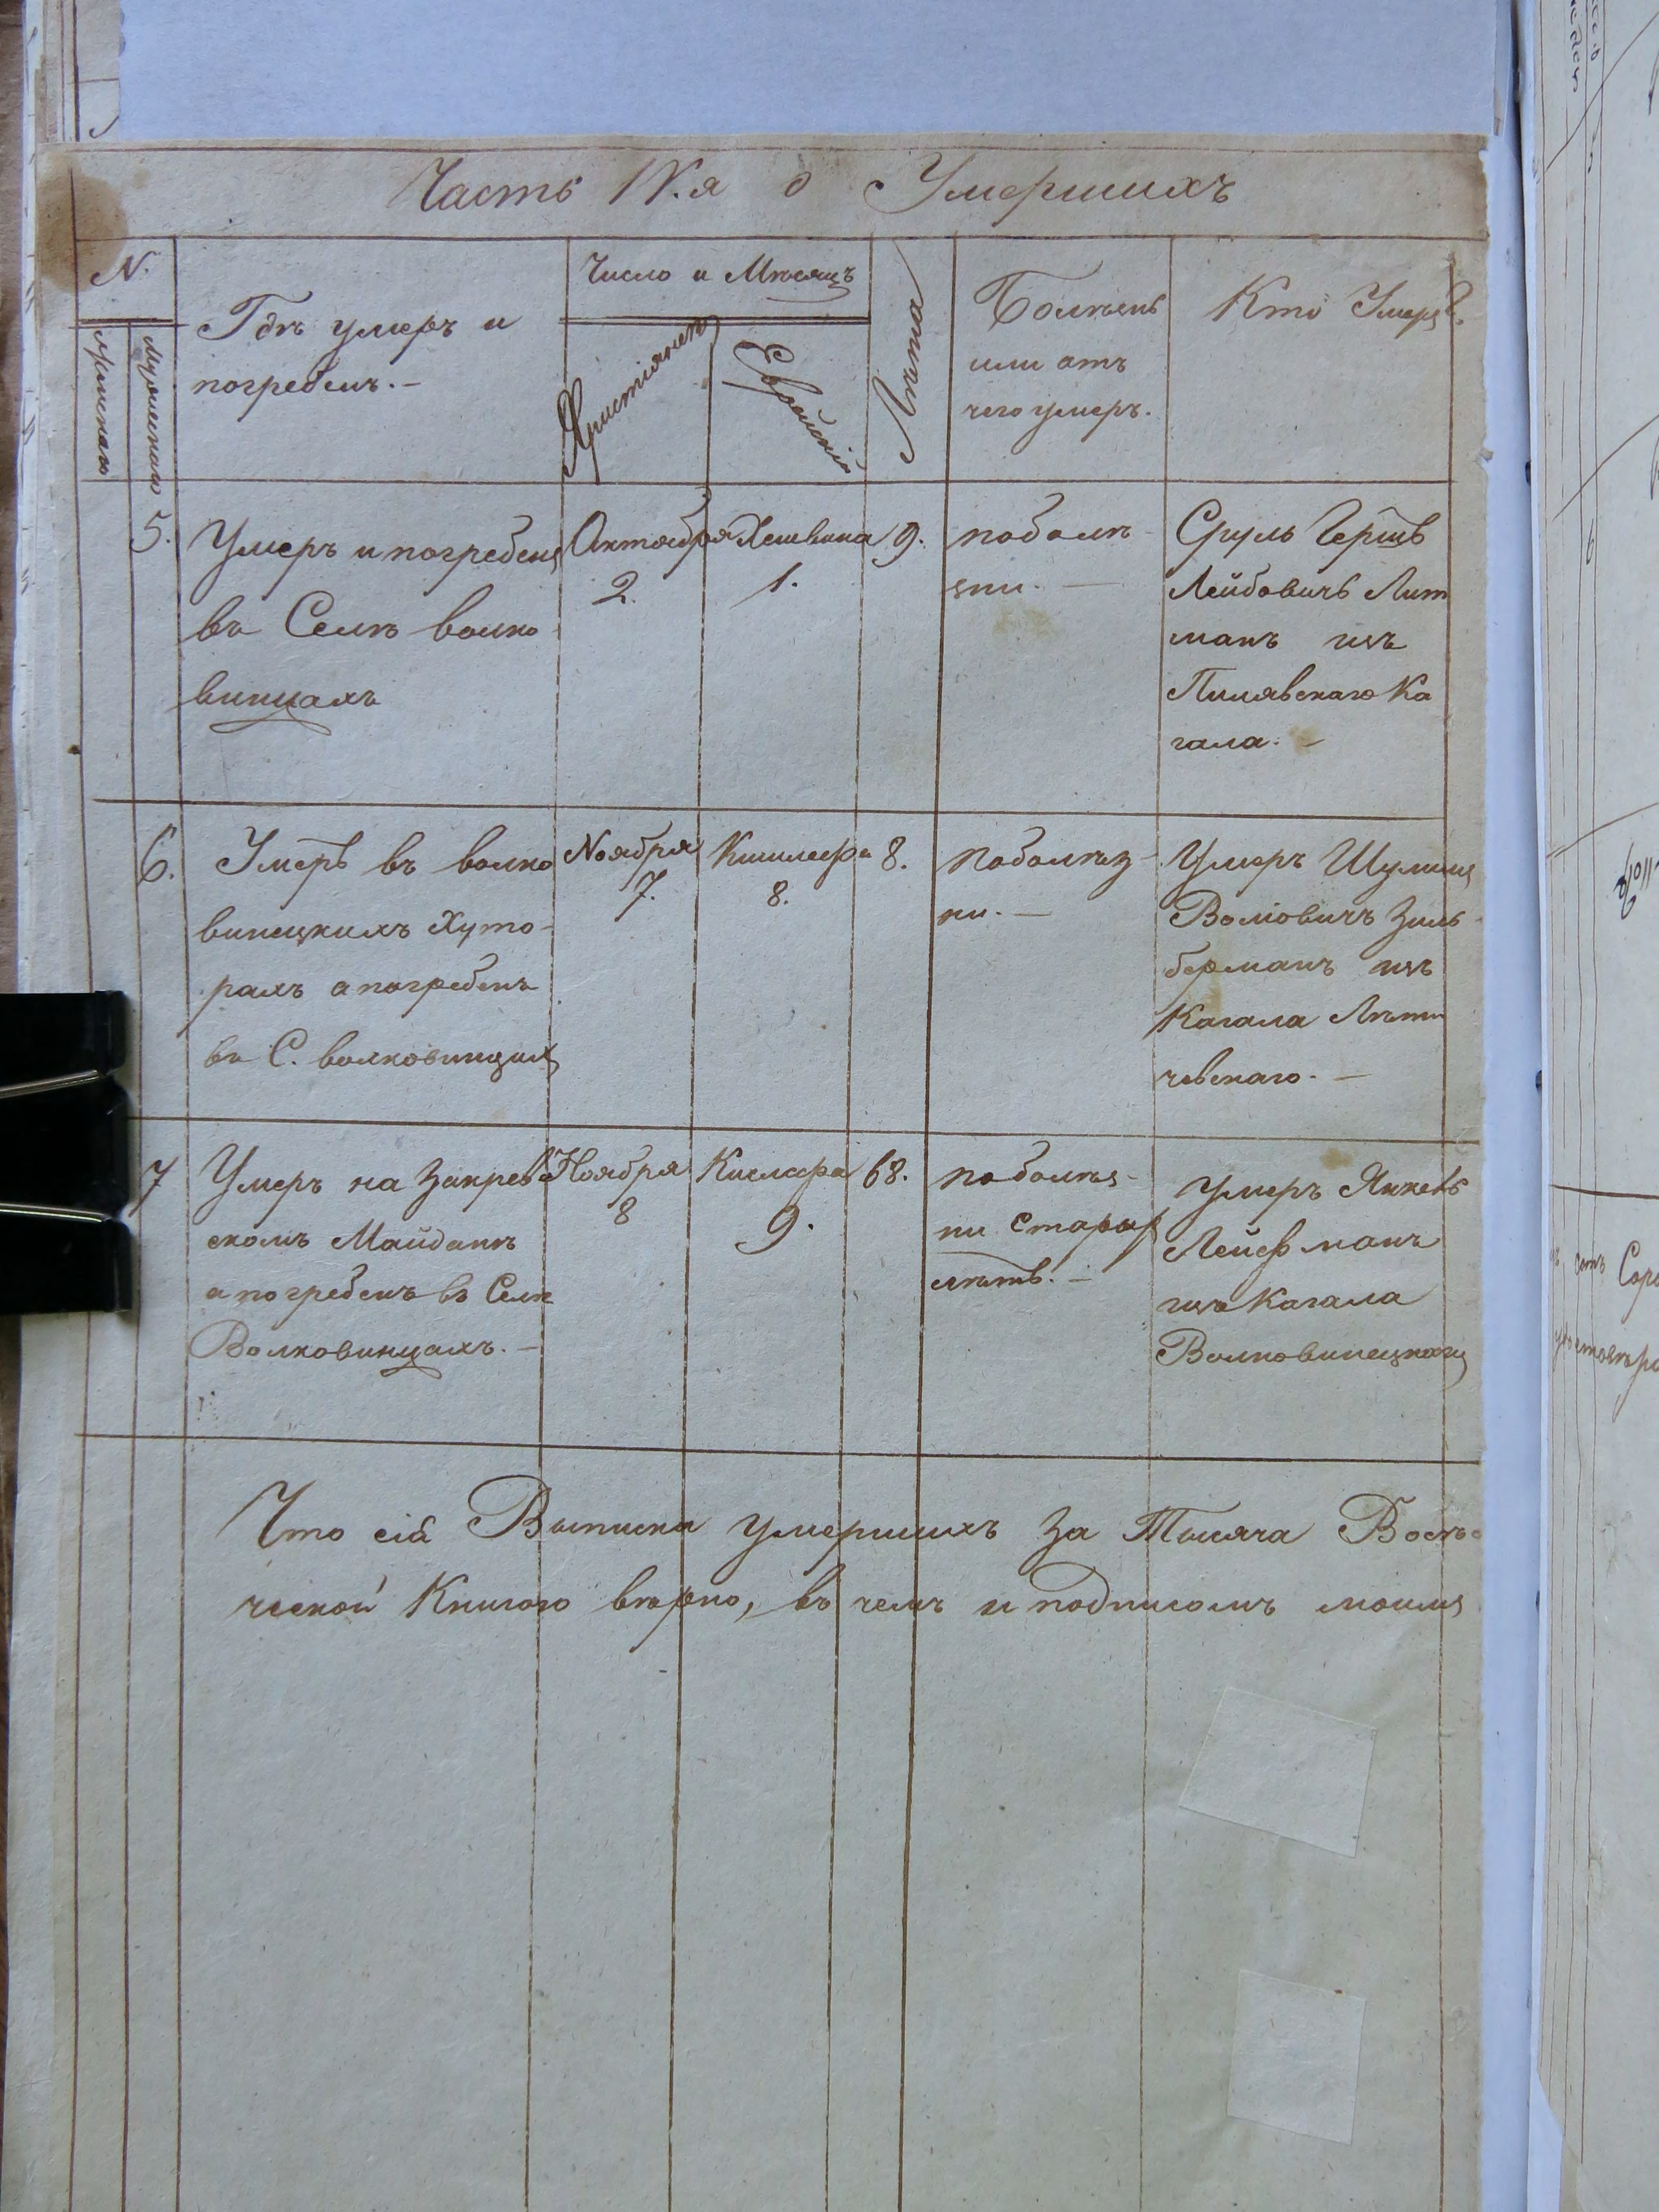 Часть IV.я о Умершихъ
N.
Женскаго
Мужескаго
Гдѣ умеръ и
погребенъ.-
Число и Мѣсяцъ
Христіянск
Еврейскій
Лѣта
Болѣзнь
или отъ
чего умеръ.
Кто Умеръ.
5.
Умеръ и погребенъ
въ Селѣ волко
винцахъ
Октября
2.
Хешвана
1.
9.
поболѣ
зни. —
Сруль Гершъ
Лейбовичъ Лит
манъ изъ
Пилявскаго Ка
гала. -
6.
Умеръ въ волко
винецкихъ Хуто-
рахъ а погребенъ
въ С. волковинцахъ
Ноября
7.
Кишлефа
8.
8.
поболѣз-
ни. —
Умеръ Шулимъ
Волковичъ Зиль
берманъ изъ
Кагала Лѣти
чевскаго. —
7
Умеръ на Закрев
скомъ Майданѣ
а погребенъ въ Селѣ
Волковинцахъ. -
Ноября
8
Кислефа
9.
68.
поболѣз-
ни Старыхъ
лѣтъ. -
Умеръ Янкевъ
Лейефманъ
изъ Кагала
Волковинецкаго
Что сія Выписка умершихъ За Тысяча Восѣ
ческой Книгою вѣрно, въ чемъ и подписомъ моимъ